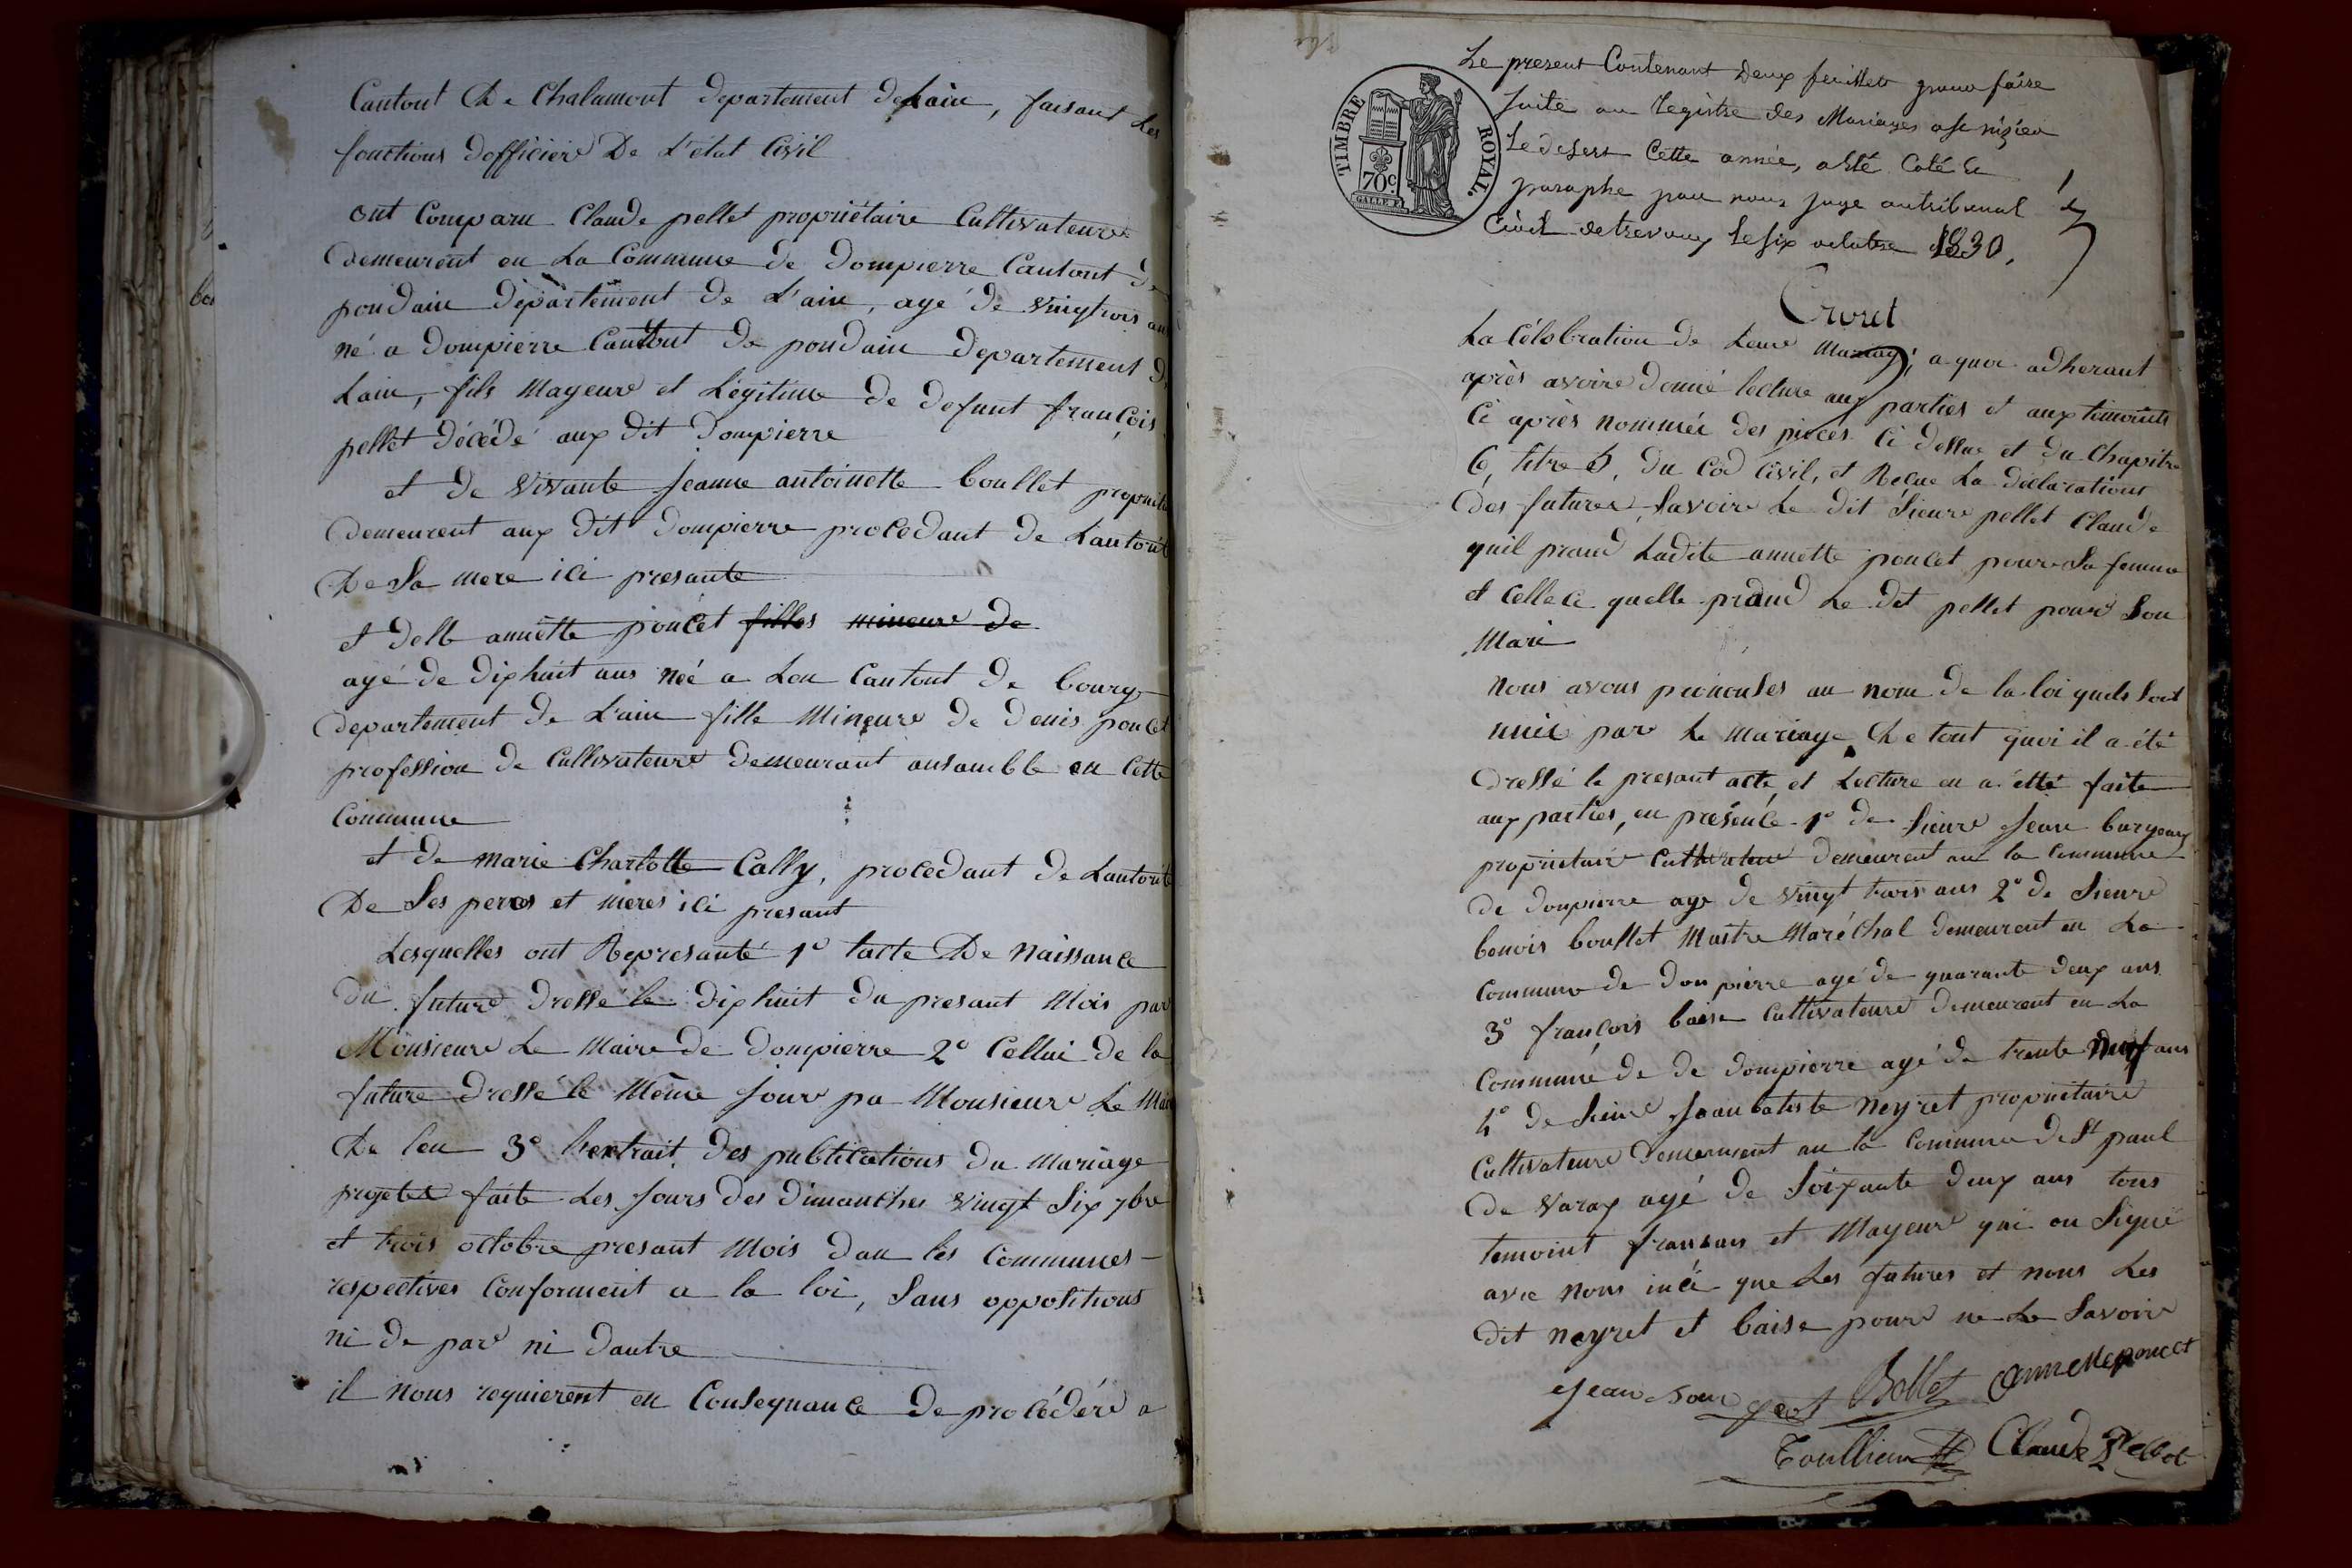 Cantont De Chalamont departement de Lain, faisant Les
fonctions dofficiere De L'état Civil
ont Comparu Claude pellet propriétaire Cultivateure
demeurent en La Commune de dompierre Cantont de
pondain département de L'ain, agé de vingtrois an
né a dompierre Cantont de pondain departement de
Lain, fils Mayeure et Légitime de defunt françois
pellet décédé aux dit Dompierre
et de vivante jeanne antoinette boullet propriétai
demeurent aux dit dompierre procedant de Lautorit
De Sa mere ici presante
et delle annette poncet filles mineure de
agé de dixhuit ans née a Lon Cantont de bourg
departement de L'ain fille Mineure de denis poncet
profession de Cultivateure demeurant ansamble en Cette
Commune
et de marie Charlotte Cally, procedant de Lautorité
De Ses peres et meres ici presant
Lesquelles ont Represanté 1° lacte De Naissance
du future dressé le dixhuit du presant Mois par
Monsieure Le Maire de dompierre 2° Cellui de la
future dressé le Même jour pa Monsieure Le Mai
De lon 3° lextrait des publications du mariage
projeter faite Les jours des dimanches vingt Six 7bre
et trois octobre presant Mois dan les Communes
respectives Conforment a la loi, Sans oppositions
ni de par ni dautre
il nous requierent en Consequance de procédéré a
Le present Contenant deux feuillets pour faire
suite au registre des Mariages de St nizier
Le desert Cette année, a été Coté et
paraphé par nous juge au tribunal
Civil de trevoux le six octobre 1830,
TIMBRE ROYAL.
70c.
La Célébration de Leur Mariage; a quoi adherant
après avoire donné lecture aux parties et aux temoints
Ci après nommée des pieces Ci dessue et du Chapitre
6, titre 5, du Cod Civil, et Reçue La déclarations
des futures, Savoire Le dit Sieure pellet Claude
quil prand Ladite annette poncet poure Sa femme
et Celle ci quelle prand Le dit pellet poure Son
Mari
Nous avons prononses au nom de la loi quils Soit
unie pare le mariage De tout quoi il a été
dressé le presant acte, et Lecture en a étté faite
aux parties, en présence 1° de Sieure Jean burgeaux
propriétaire Cultivateur demeurent en la Commune
de dompierre age de vingt trois ans 2° de Sieure
benois boullet Maitre Maréchal demeurent en La
Commune de dompierre agé de quarante deux ans
3° françois baise Cultivateure demeurent en La
Commune de de dompierre agé de trente neuf ans
4° de Sieure Jean batiste Neyret propriétaire
Cultivateure demeurent en la Commune de St paul
de varax agé de Soixante deux ans tous
temoint fransais et Mayeure qui on Signé
avec nous inci que Les futures et nous Les
dit Neyret et baise poure ne Le Savoire
Jean
annette poncet
Claude Pellet